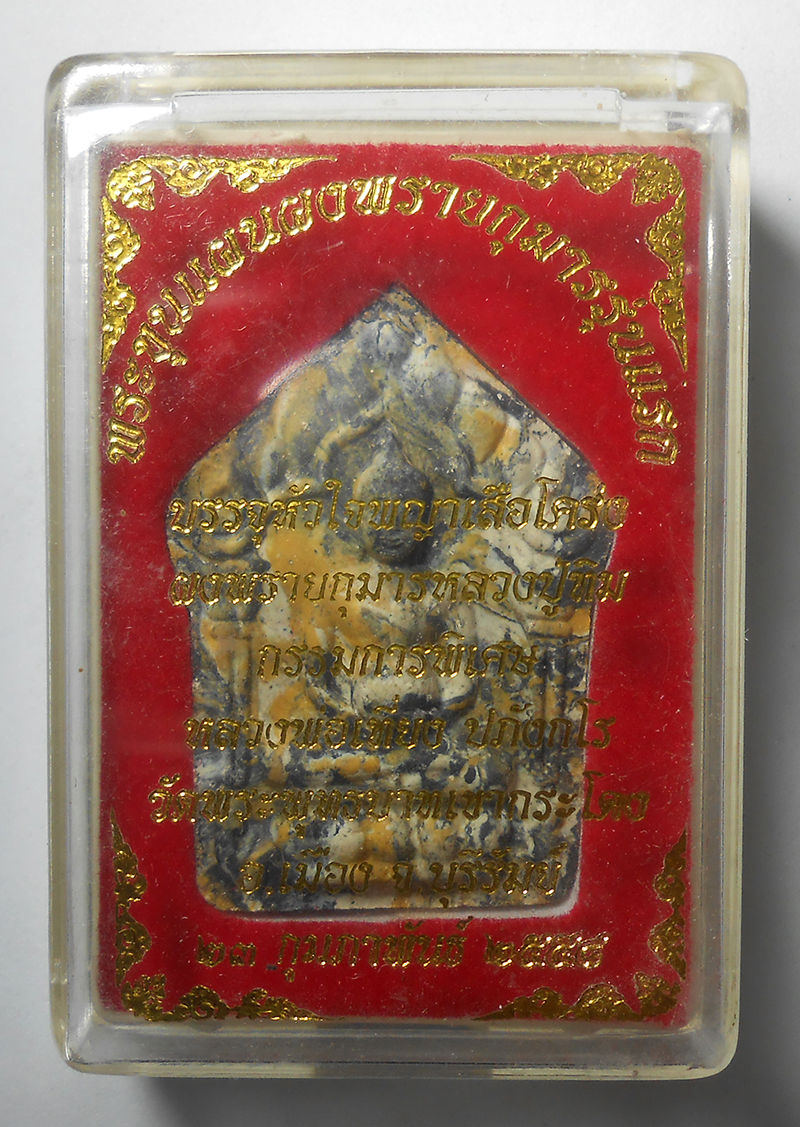 พระขุนแผนผงพรายกุมารรุ่นแรก
บรรจุหัวใจพญาเสือโคร่ง
ผงพรายกุมารหลวงปู่ทิม
กรรมการพิเศษ
หลวงพ่อเที่ยง ปภังกโร
วัดพระพุทธบาทเขากระโดง
อ.เมือง จ.บุรีรัมย์
๒๓ กุมภาพันธ์ ๒๕๕๔